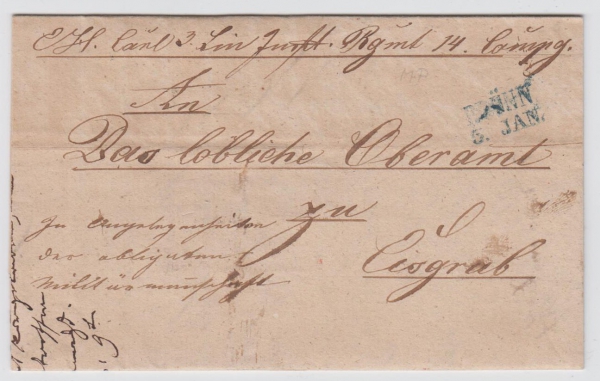 EH. Carl 3. Lin Inftt. Rgmt 14. Coumpg.
An
BRÜNN
5. JAN.
Das lobliche Oberamt
zu
Eisgrub
In Angelegenheiten
der obligaten
Militärmannschaft